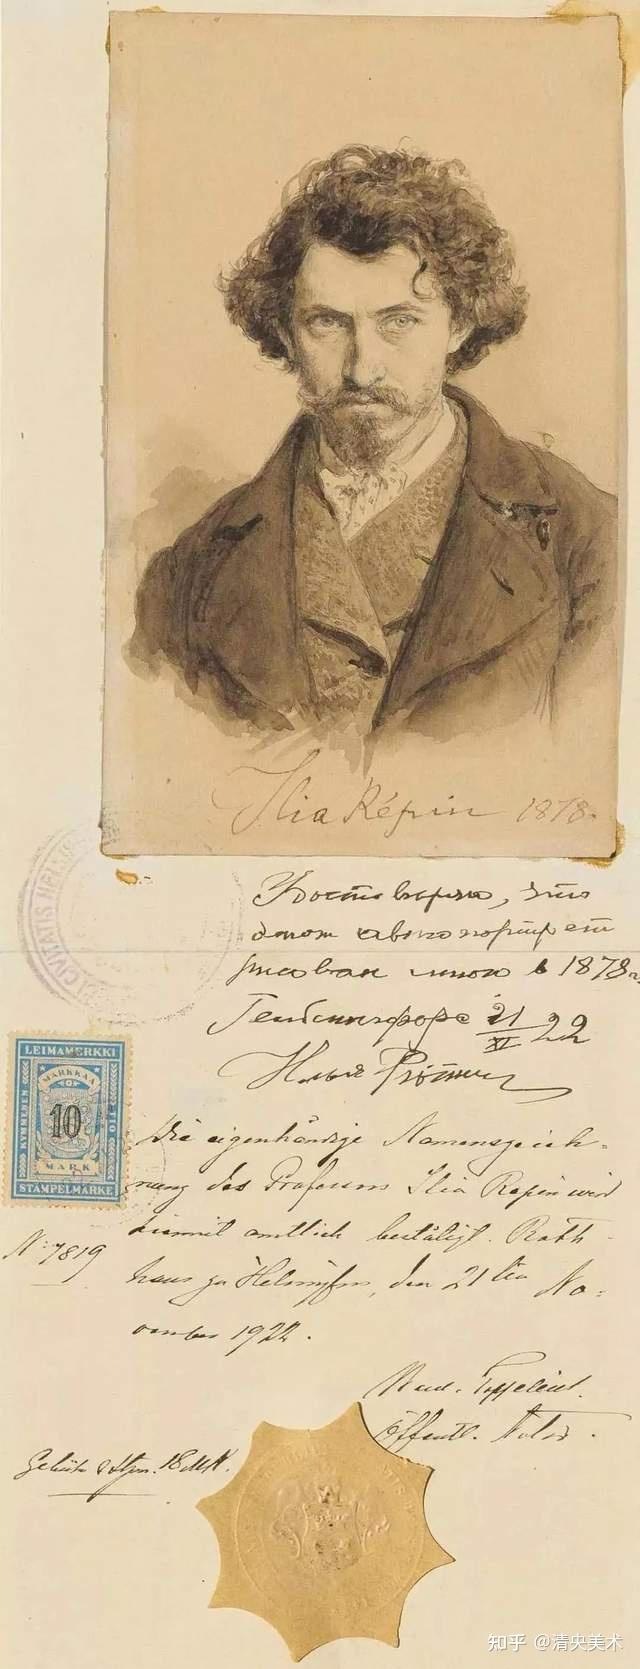 Ilia Répin 1878.
Удостоверяю, это
автопортрет
рисован мною в 1878 г.
Гельсингфорс 21/XI 22
Илья Репин
CIVITATIS
LEIMAMERKKI
MARKKAA
KYMMENEN
TIO
10
MARK
STÄMPELMÄRKE
Die eigenhändige Namenszeich-
nung des Professors Ilia Repin wird
hiermit amtlich bestätigt. Rath-
haus zu Helsingfors, den 21ten No-
vember 1922.
N: 7819
Öffentl. Notar.
18 Mk.
知乎 @清央美术